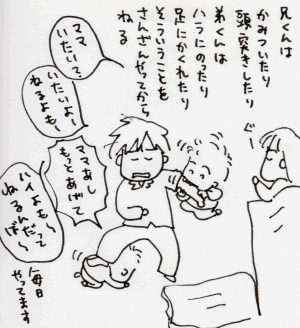 兄くんは
かみついたり
頭突きしたり
ぐー
弟くんは
ハラにのったり
足にかくれたり
そういうことを
さんざんやってから
ねる
ママ
いたいって
いたいよー
ねるよもー
ママあし
もっとあげて
ハイよもーって
ねるんだー
ばー
毎日
やってます